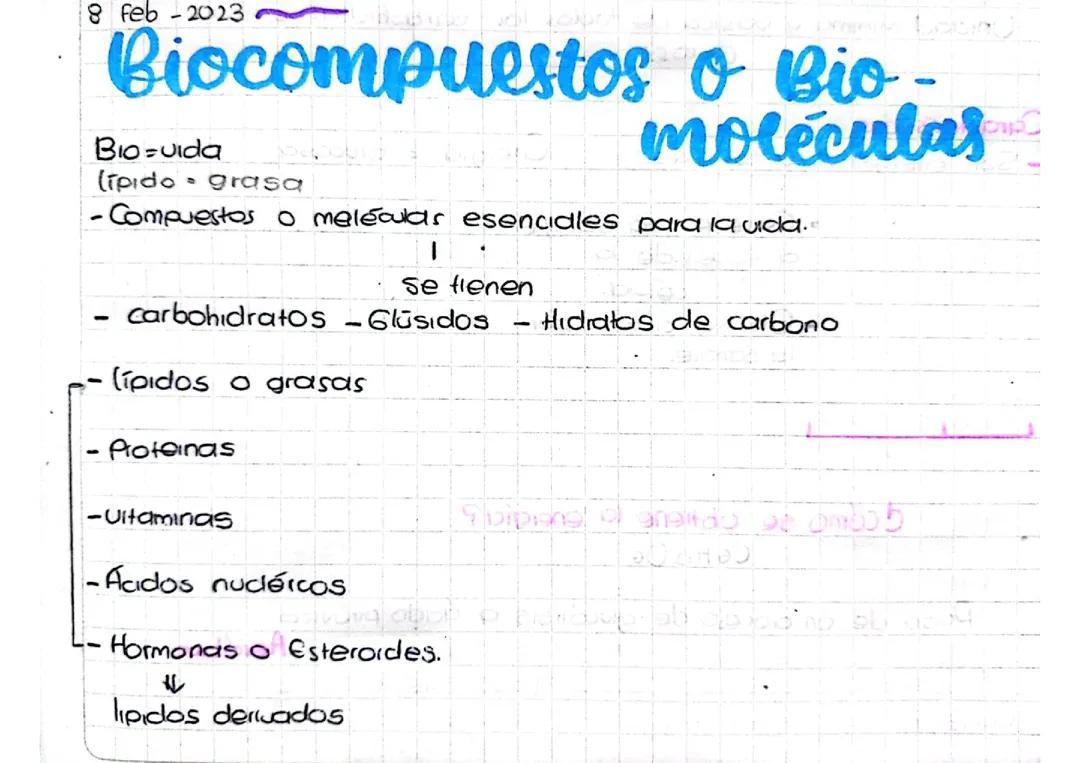 8 Feb - 2023
Biocompuestos o Bio-
moléculas
Bio = vida
lípido = grasa
- Compuestos o meléculas esenciales para la vida.
se tienen
- carbohidratos - Glúsidos - Hidratos de carbono
- lípidos o grasas
- Proteinas
- vitaminas
- Ácidos nucléicos
- Hormonas o Esteroides.
⇓
lipidos derivados